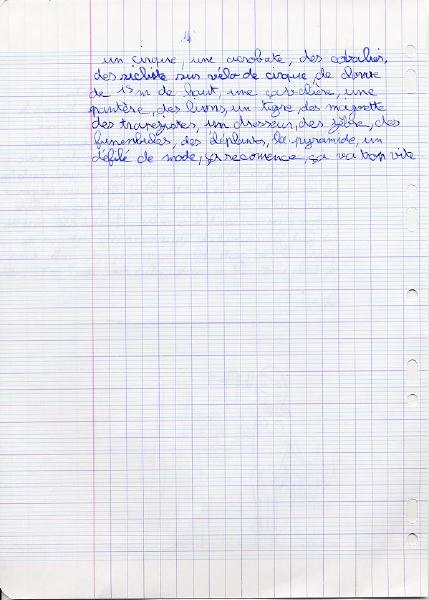 4
un cirque, une acrobate, des cavaliés,
des sicliste sur vélo de cirque de
de 15 m de haut, une cavalière, une
pantère, des lions, un tigre, des
des trapezistes, un dresseur, des zèbre, des
funenbules, des éléphants, la pyramide, un
défilé de mode, ça recomence, ça va trop vite